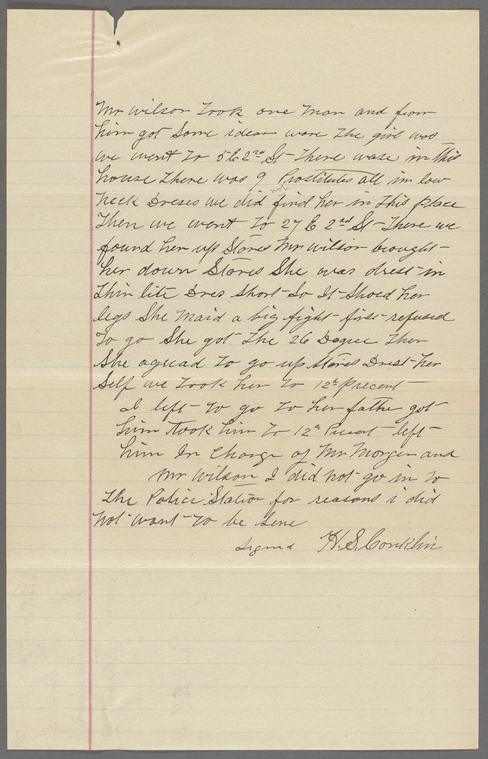 Mr Wilson Took one Man and from
him got Some idear ware The girl was
we went To 5 E 2nd St There wase in This
house There was 9 Prostitutes all in low
Neck Dresses we did not find her in This place
Then we went To 27 E 2nd St There we
found her up Stares Mr Wilson brought
her down Stares She was drest in
Thin lite Dres Short So It Shoed her
legs She Maid a big fight first refused
To go She got The 26 Degree Then
She agread To go up Stares Drest her
Self we Took her To 12th Precent
I left To go To her fathe got
him Took him To 12th Precent left
him In Charge of Mr Morgan and
Mr Wilson I did not go in to
The Police Station for reasons i did
not want To be Sene
Signed H. S. Conklin